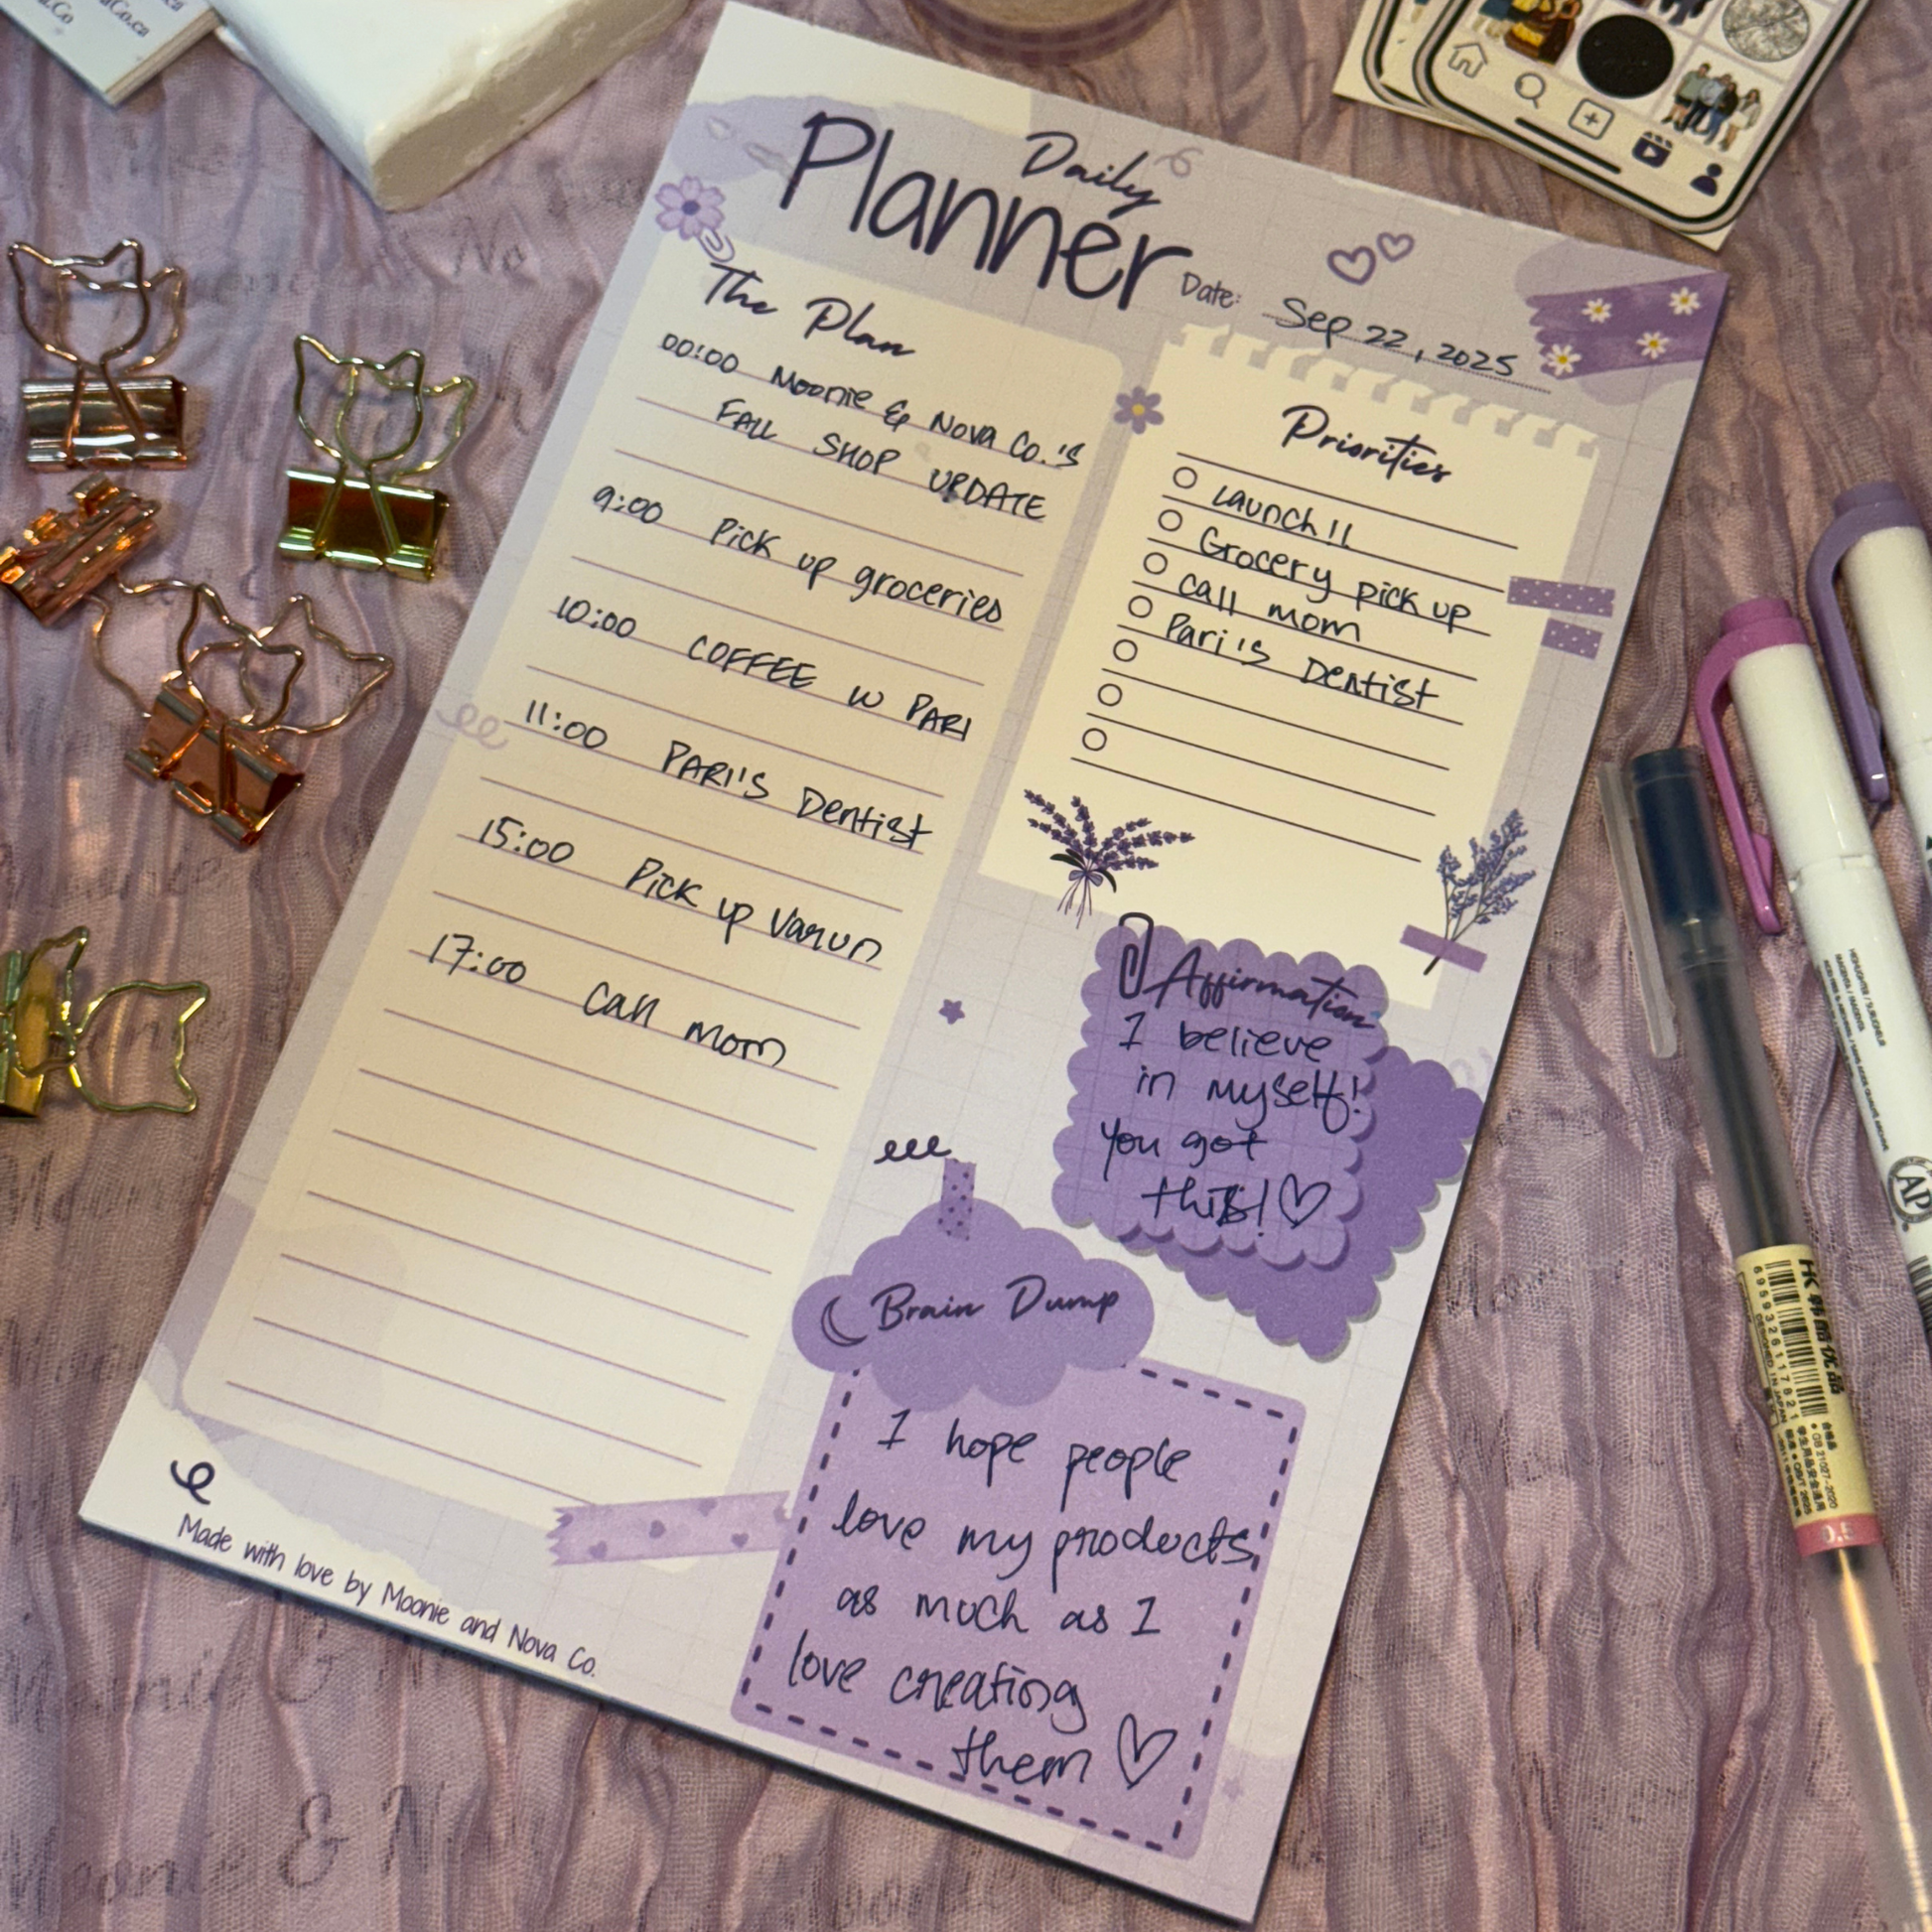 Co.ca
Daily
Planner
Date: Sep 22, 2025
The Plan
00:00 Moonie & Nova Co.'s
FALL SHOP UPDATE
9:00 Pick up groceries
10:00 COFFEE W PARI
11:00 PARI'S Dentist
15:00 Pick up Varun
17:00 Call mom
Priorities
Launch!!
Grocery pick up
call mom
Pari's Dentist
Affirmation
I believe
in myself!
You got
this!♡
Brain Dump
I hope people
love my products
as much as I
love creating
them ♡
Made with love by Moonie and Nova Co.
AP
6959326117821
DESIGNED IN JAPAN
0.5